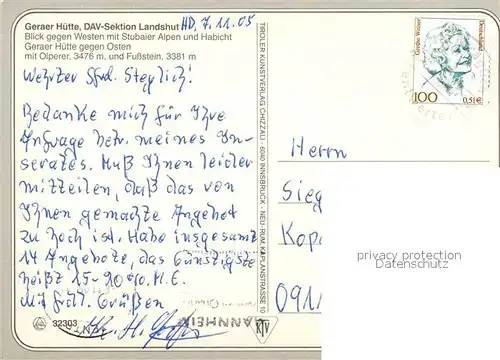 Geraer Hütte, DAV-Sektion Landshut HD, 7.11.05
Blick gegen Westen mit Stubaier Alpen und Habicht
Geraer Hütte gegen Osten
mit Olperer, 3476 m, und Fußstein, 3381 m
Werter Sfrd. Steglich!
Bedanke mich für Ihre
Anfrage betr. meines In-
serates. Muß Ihnen leider
mitteilen, daß das von
Ihnen gemachte Angebot
zu hoch ist. Habe insgesamt
14 Angebote, das Günstigste
heißt 15-20% M.E.
Mit frdl. Grüßen
32303
TIROLER KUNSTVERLAG CHIZZALI · 6040 INNSBRUCK - NEU-RUM, KAPLANSTRASSE 10
KTV
MANNHEIM
Deutschland
100
0,51€
Herrn
Sieg
Kop
091
privacy protection
Datenschutz